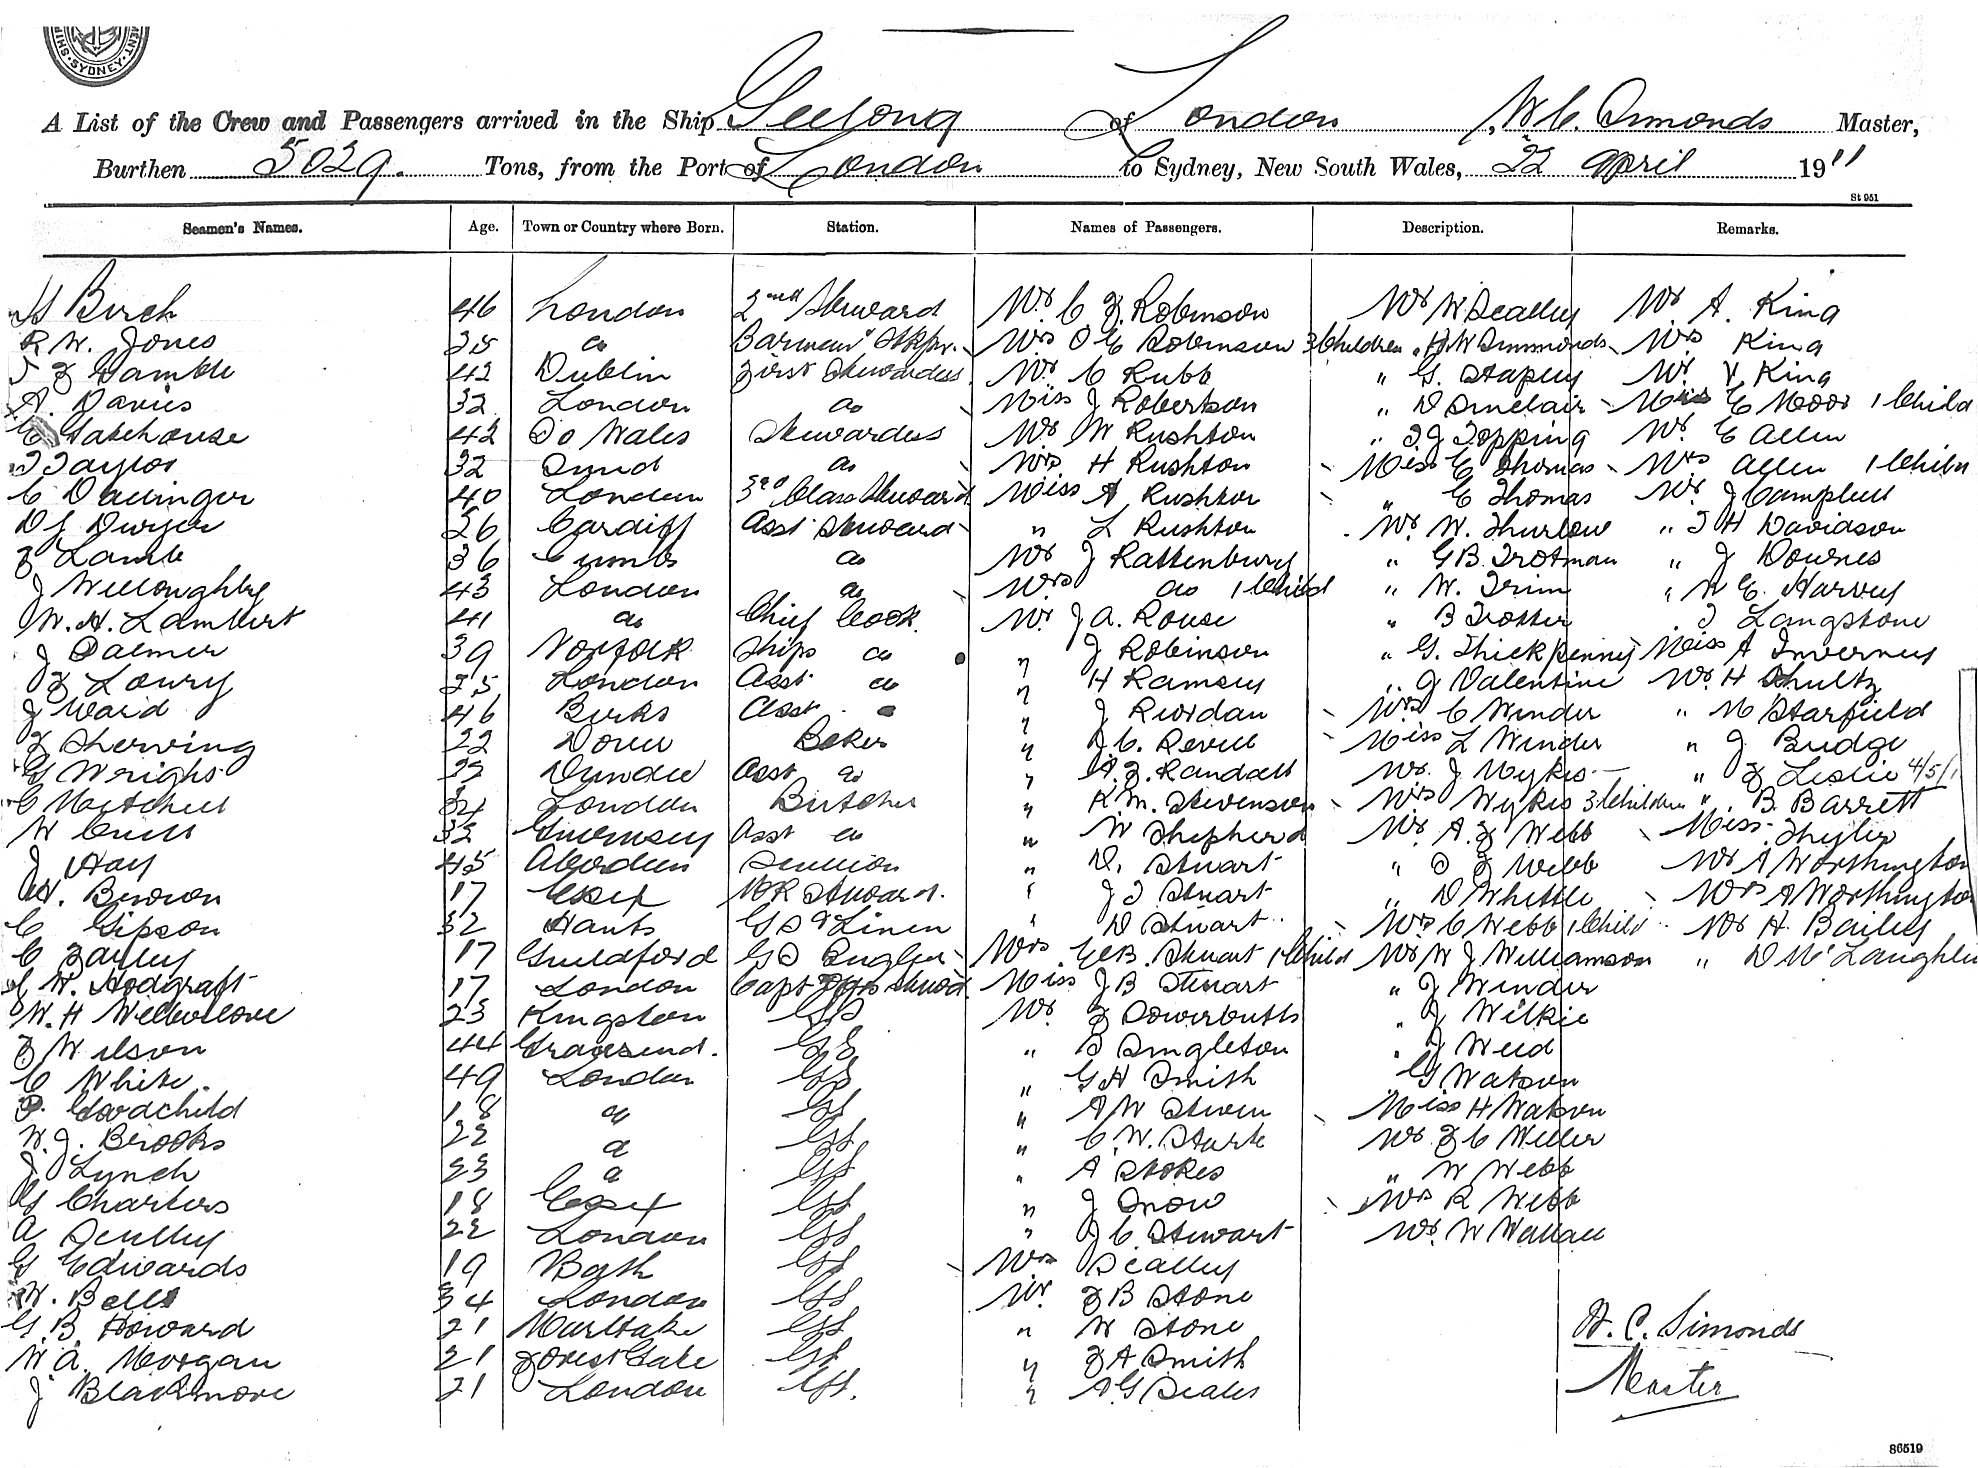 SYDNEY
A List of the Crew and Passengers arrived in the Ship Geelong of London, W C. Simonds Master,
Burthen 5029. Tons, from the Port of London to Sydney, New South Wales, 22 April 1911
St 951
Seamen's Names. Age. Town or Country where Born. Station. Names of Passengers. Description. Remarks.
Birch 46 London 2nd Steward Mr. C F. Robinson Mr W Dealley Mr A. King
R W. Jones 38 do Mrs O E Robinson 3 Children " H W Simmonds Mrs King
Gamble 42 Dublin First Stewardess Mr. C Rubb " G. Stapley Mr V King
A. Davies 32 London do Miss J Robertson " D Sinclair Miss E Moor 1 Child
Gatehouse 42 So Wales Stewardess Mr W Rushton " T. J Topping Mr. E Allen
Taylor 32 Sund do Mrs H Rushton Miss E Thomas Mrs Allen 1 Child
C Dallinger 40 London 3rd Class Steward Miss A Rushton " E Thomas Mr J Campbell
D J Dwyer 26 Cardiff Asst Steward " L Rushton Mr. W. Thurlow " T H Davidson
F Lamb 36 Cumb do Mr J Rattenbury " G B. Trotman " J Downes
J Willoughby 43 London do Mrs do 1 Child " W. Trim " W E. Harvey
W. H. Lambert 41 do Chief Cook. Mr. J A. Rouse " B Trotter T Langstone
J Palmer 39 Norfolk Ships do " J Robinson " G. Thickpenny Miss A Inverney
F Lowry 25 London Asst do " H Ramsey " G Valentine Mr. H Shultz
J Ward 46 Berks Asst do " J Riordan Mrs C Winder " M Starfield
F Sherving 22 Dover Baker " J. C. Revell Miss L Winder " J Budge
G Wright 22 Dundee Asst do " A. F. Randall Mr. J Wykes " F Leslie 4/5/1
C Mitchell 34 London Butcher " K M. Stevenson Mrs Wykes 3 Children " B. Barrett
W Cull 32 Guernsey Asst do " W Shepherd Mr. A. F Webb Miss
J Hay 45 Aberdeen Scullion " D. Stuart " S F Webb Mr A Worthington
Benson 17 Essex Steward. " J T Stuart " D Whittle Mrs A Worthington
C Gipson 32 Hants G S & Linen " D Stuart Mrs C Webb 1 Child Mr H. Bailey
C Bayley 17 Guildford G S Bugler Mrs E B. Stuart 1 Child Mr W J Williamson " D McLaughlin
W. Hodgraft 17 London Capt Steward Miss J B Stuart " J Winder
W. H Wellbelove 23 Kingston GS Mr. F Sowerbutts " J Wilkie
F Wilson 44 Gravesend. GS " S Singleton " J Weed
C White. 49 London GS " G H Smith " G Watson
P. Goodchild 18 do GS " A W Stiven Miss H Watson
W. J. Brooks 22 do GS " C. W. Stark Mr F C Weller
J Lynch 23 do GS " A Stokes " W Webb
G Charters 18 Essex GS " J Snow Mrs R Webb
A Sculley 22 London GS " J. C. Stewart Mr. W Wallace
G Edwards 19 Bath GS Mrs Dealley
W. Bells 34 London GS Mr. F B Stone
G. B. Howard 21 Mortlake GS " W Stone H. C. Simonds
W. A. Morgan 21 Forest Gate GS " F A Smith
J Blackmore 21 London GS. " A G Seales Master
86519